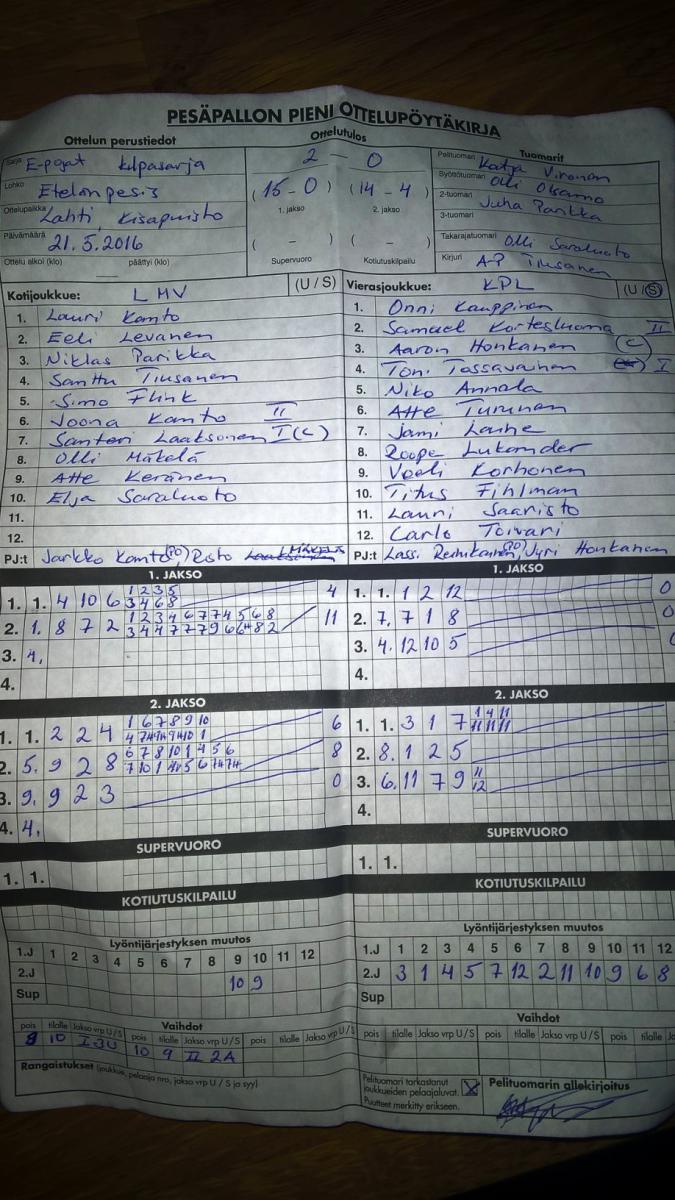 PESÄPALLON PIENI OTTELUPÖYTÄKIRJA
Ottelun perustiedot
Sarja E-pojat kilpasarja
Lohko Etelän pesis
Ottelupaikka Lahti, Kisapuisto
Päivämäärä 21.5.2016
Ottelu alkoi (klo) päättyi (klo)
Ottelutulos
2 - 0
(15 - 0) (14 - 4)
1. jakso 2. jakso
( - ) ( - )
Supervuoro Kotiutuskilpailu
Tuomarit
Pelituomari Katja Vironen
Syöttötuomari Olli
2-tuomari Juha Parikka
3-tuomari
Takarajatuomari Olli Saraluoto
Kirjuri A-P Tiusanen
Kotijoukkue: LMV (U / S)
1. Lauri Kamto
2. Eeli Levanen
3. Niklas Parikka
4. Santtu Tiusanen
5. Simo Flink
6. Joona Kamto II
7. Santeri Laaksonen I (C)
8. Olli Mäkelä
9. Atte Keränen
10. Elja Saraluoto
11.
12.
PJ:t Jarkko Kamto (PO), Risto
Vierasjoukkue: KPL (U/S)
1. Onni Kauppinen
2. Samuel Kortesluoma II
3. Aaron Honkanen (C)
4. Toni Tossavainen I
5. Niko Annala
6. Atte Turunen
7. Jami Lauhe
8. Roope Lukander
9. Veeli Korhonen
10. Titus Fihlman
11. Lauri Saaristo
12. Carlo Toivari
PJ:t Lassi (PO), Jyri Honkanen
1. JAKSO
1. 1. 4 10 6 1 2 3 5 4
3 4 6 8
2. 1. 8 7 2 11
3. 4.
4.
1. JAKSO
1. 1. 1 2 12 0
2. 7. 7 1 8 0
3. 4. 12 10 5 0
4.
2. JAKSO
1. 1. 2 2 4 1 6 7 8 9 10 6
2. 5. 9 2 8 6 7 8 10 1 4 5 6 8
3. 9. 9 2 3 0
4. 4.
2. JAKSO
1. 1. 3 1 7 1 4 11
11 11 11
2. 8. 1 2 5
3. 6. 11 7 9 11
12
4.
SUPERVUORO
1. 1.
SUPERVUORO
1. 1.
KOTIUTUSKILPAILU
KOTIUTUSKILPAILU
Lyöntijärjestyksen muutos
1.J 1 2 3 4 5 6 7 8 9 10 11 12
2.J 10 9
Sup
Lyöntijärjestyksen muutos
1.J 1 2 3 4 5 6 7 8 9 10 11 12
2.J 3 1 4 5 7 12 2 11 10 9 6 8
Sup
Vaihdot
pois tilalle Jakso vrp U / S pois tilalle Jakso vrp U / S pois tilalle Jakso vrp U / S
8 10 I 3U 10 9 II 2A
Rangaistukset (joukkue, pelaaja nro, jakso vrp U / S ja syy)
Vaihdot
pois tilalle Jakso vrp U / S pois tilalle Jakso vrp U / S pois tilalle
Pelituomari tarkastanut
joukkueiden pelaajaluvat. X
Puutteet merkitty erikseen.
Pelituomarin allekirjoitus